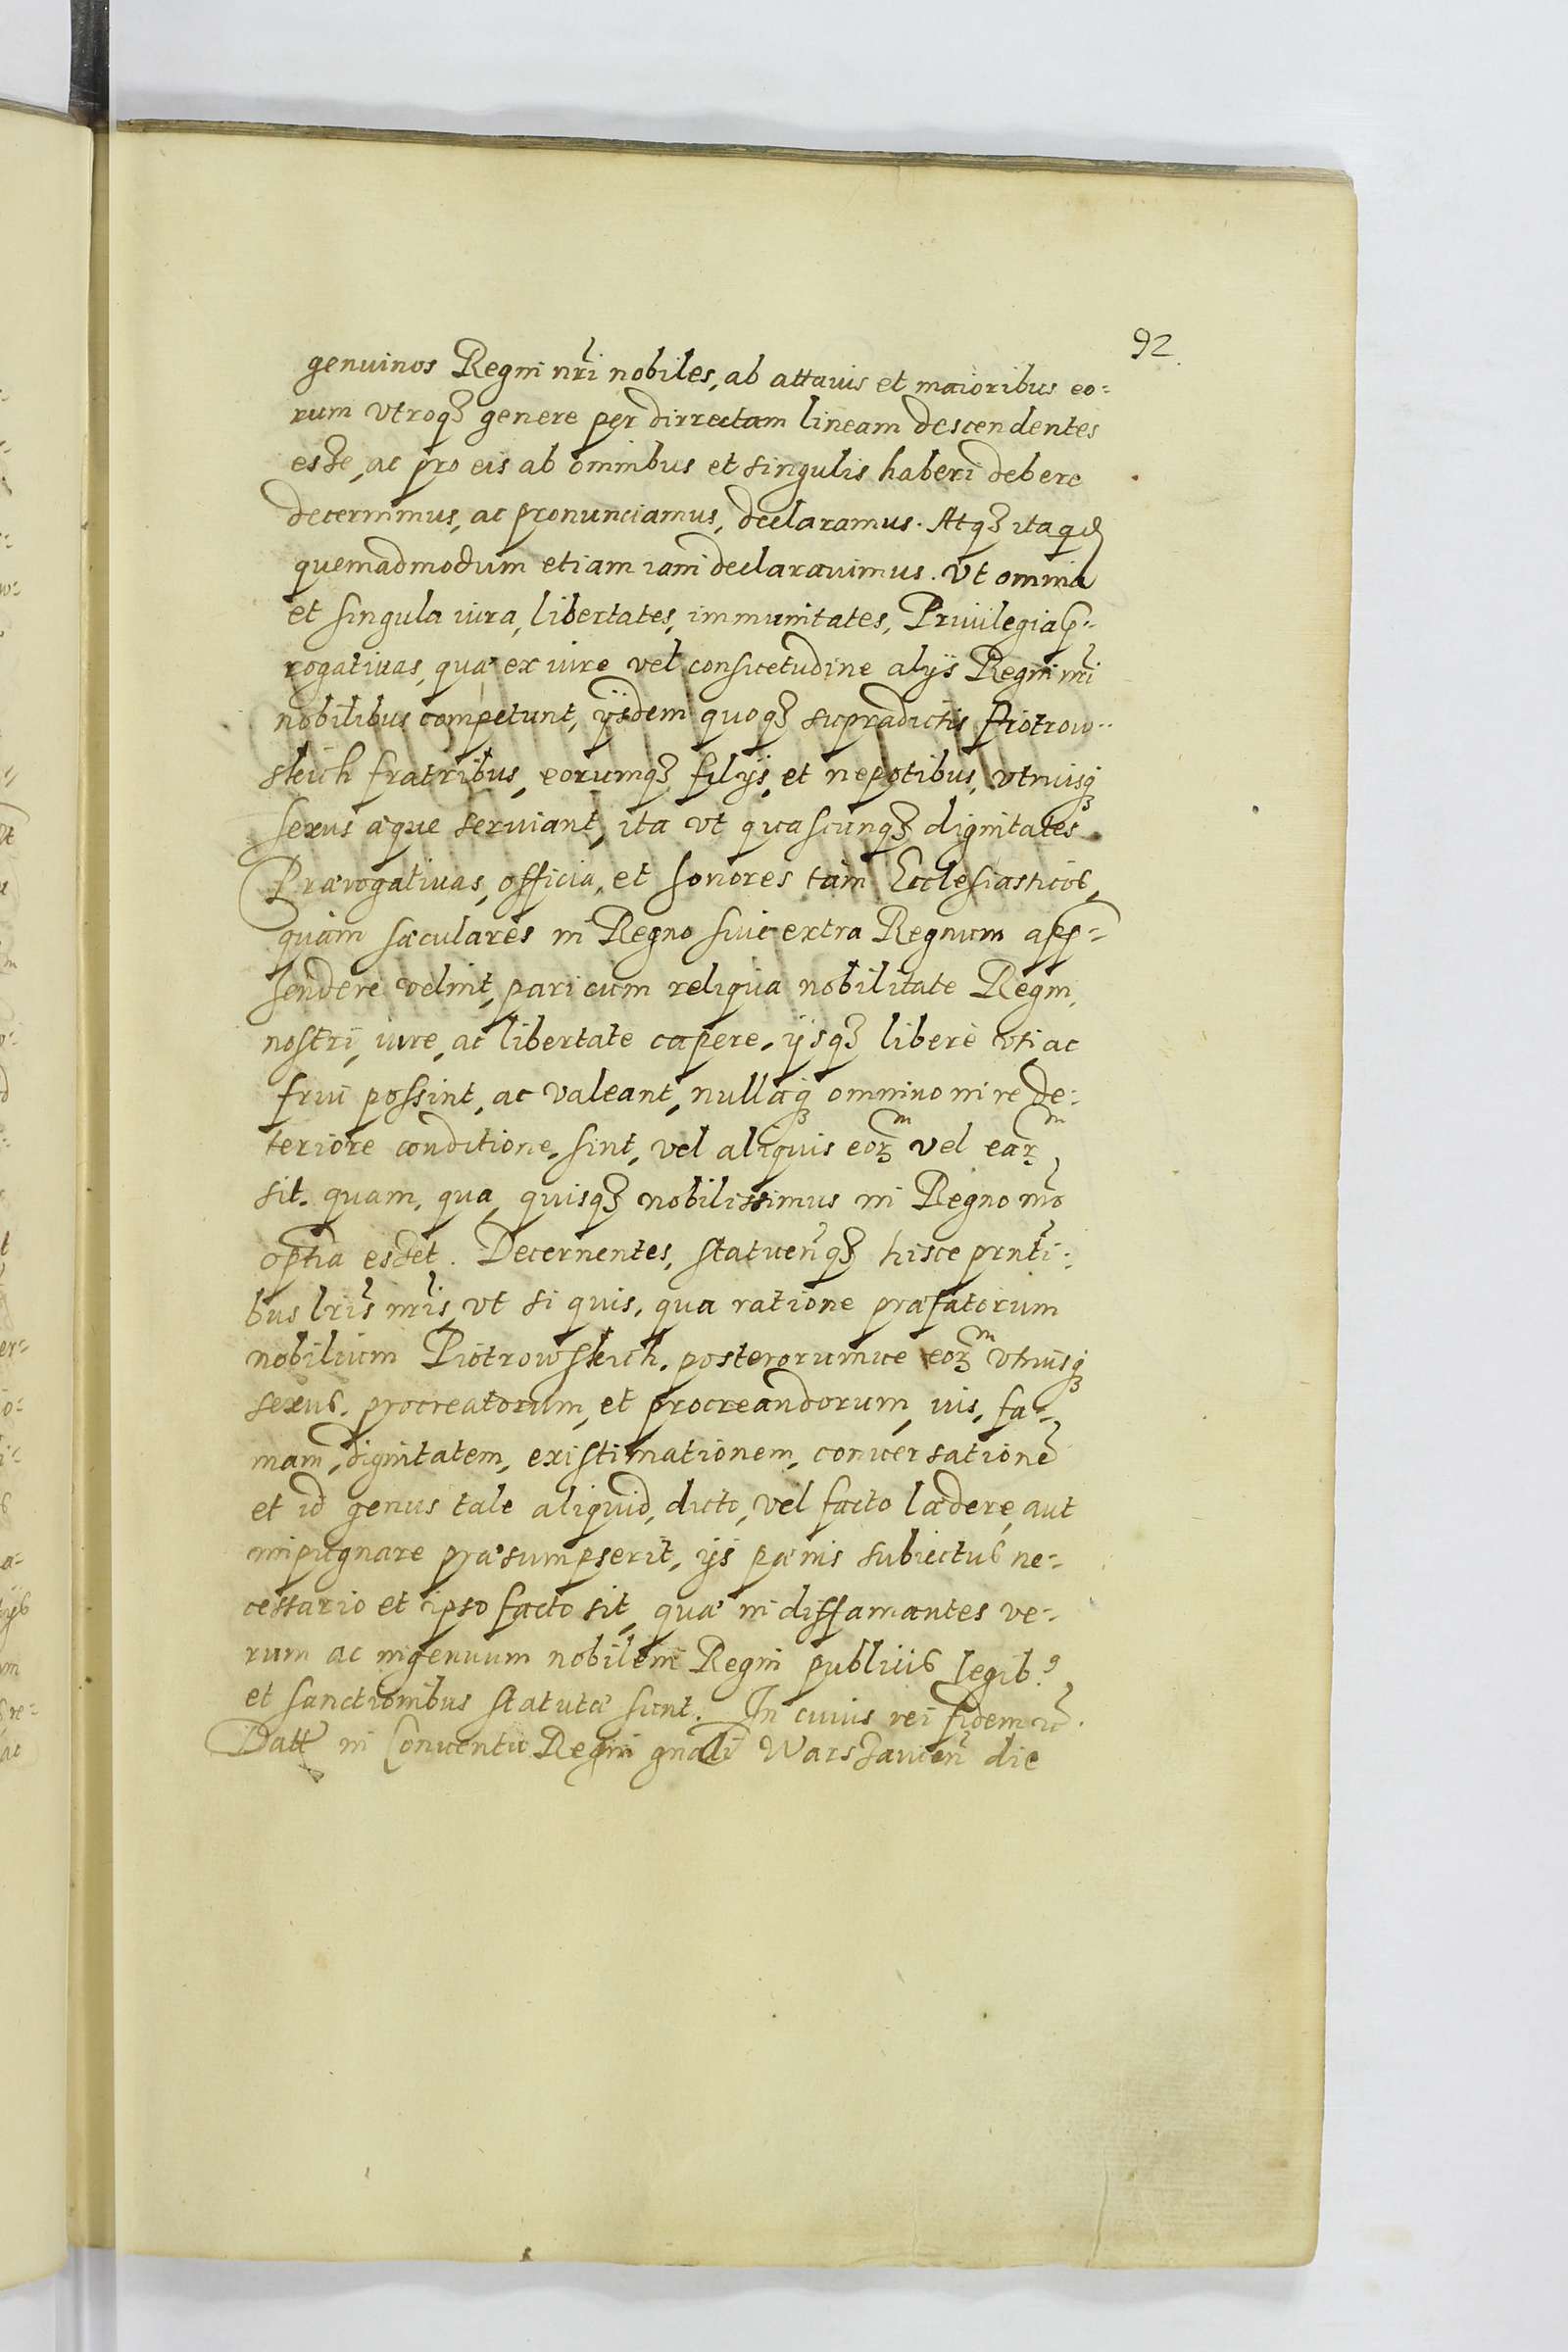 92.
genuinos Regni nri nobiles, ab attauis et maioribus eo:
rum vtroq3 genere per dirrectam lineam descendentes
esse, ac pro eis ab omnibus et singulis haberi debere
decernimus, ac pronunciamus, declaramus. Atq3 itaq3
quemadmodum etiam iam declarauimus. Vt omnia
et singula iura, libertates, immunitates, Priuilegia p:
rogatiuas, quæ ex iure vel consuetudine alijs Regni nri
nobilibus competunt, ijsdem quoq3 supradictis Piotrow:
skich fratribus, eorumq3 filijs, et nepotibus, vtriusq3
sexus æque seruiant, ita vt quascunq3 dignitates
Prærogatiuas, officia, et honores tam Ecclesiasticos,
quàm sæculares in Regno siue extra Regnum app:
hendere velint, pari cum reliqua nobilitate Regni
nostri, iure, ac libertate capere, ijsq3 liberè vti ac
frui possint, ac valeant, nullaq3 omnino in re de:
teriore conditione, sint, vel aliquis eorum vel earum
sit. quam, qua, quisq3 nobilissimus in Regno nro
optia esset. Decernentes, statuenq3 hisce pnti:
bus lris nris, vt si quis, qua ratione præfatorum
nobilium Piotrowskich, posterorumue eorum vtriusq3
sexus, procreatorum, et procreandorum, ius, fa:
mam, dignitatem, existimationem, conuersatione
et id genus tale aliquid, dicto, vel facto lædere, aut
impugnare præsumpserit, ijs pænis subiectus ne:
cessario et ipso facto sit, quæ in diffamantes ve:
rum ac ingenuum nobilem Regni publicis legib9
et sanctionibus statutæ sunt. In cuius rei fidem etc.
Datt in Conuentu Regni gnali Warszauien die